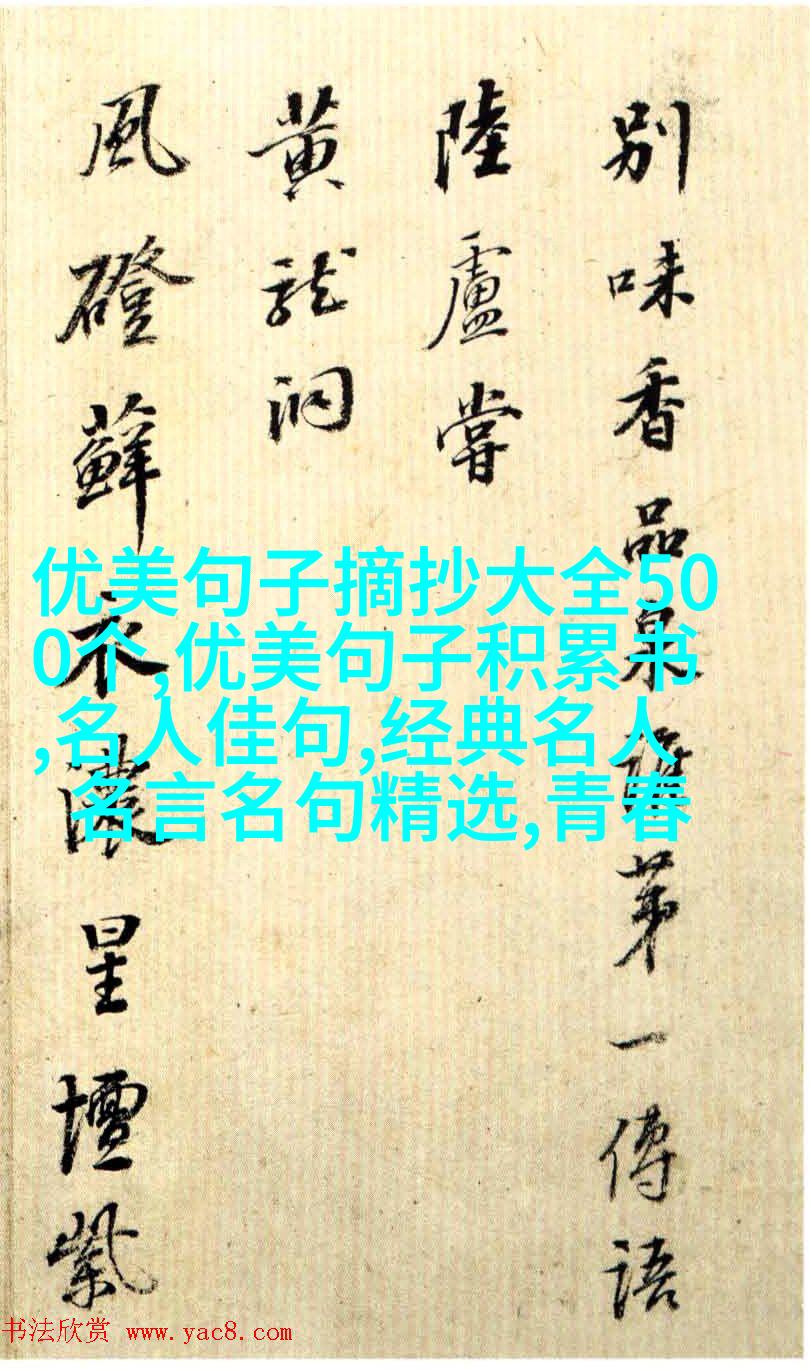 別味香品泉譜第一傳語
陸盧嘗
黃龍洞
風磴蘚衣濃星壇紫
优美句子摘抄大全50
0个,优美句子积累书
,名人佳句,经典名人
名言名句精选,青春
书法欣赏 www.yac8.com